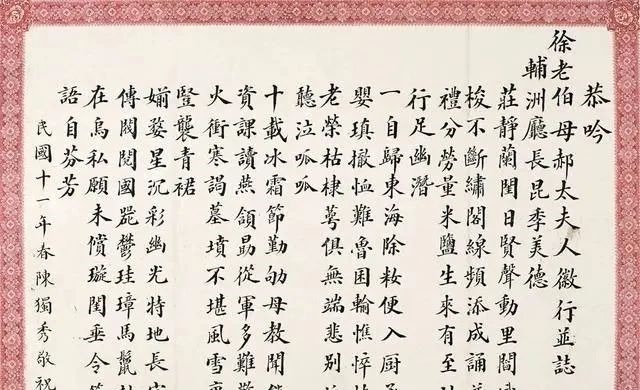 恭吟
徐老伯母郝太夫人徽行並誌
輔洲廳長昆季美德
莊靜蘭閨日賢聲動里閭
梭不斷繡閣線頻添成誦
禮分勞量米鹽生來有至
行足幽潛
一自歸東海除妝便入厨
嬰瑱撤恤難魯囷輸憔悴
老榮枯棣萼俱無端悲別
聽泣呱呱
十載冰霜節勤劬母教聞
資課讀燕頷勗從軍多難
火衝寒謁墓墳不堪風雪
竪襲青裙
婣婺星沉彩幽光特地長
傳閥閱國器鬱珪璋馬鬣
在烏私願未償璇閨垂令
語自芬芳
民國十一年春陳獨秀敬祝